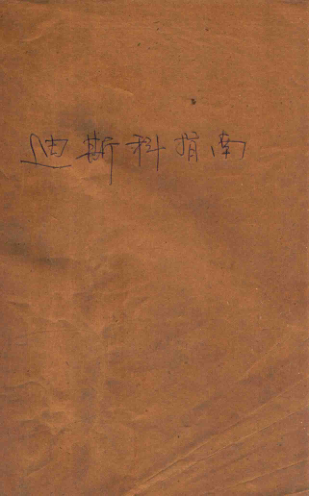 迪斯科指南